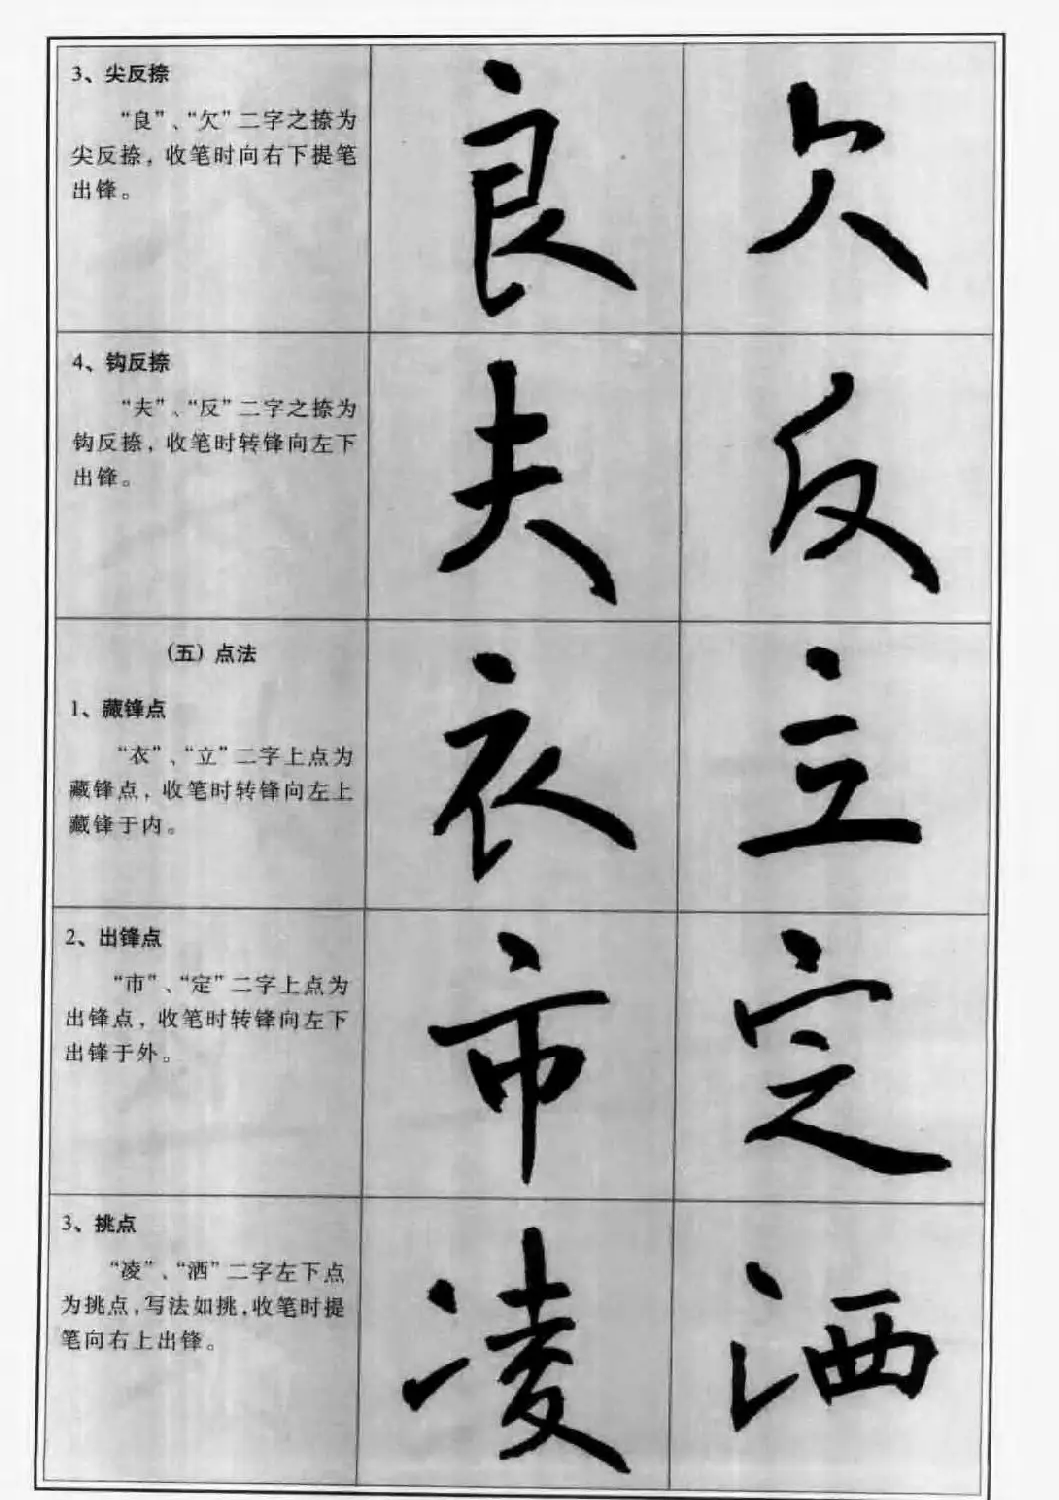 3、尖反捺
“良”、“欠”二字之捺为
尖反捺，收笔时向右下提笔
出锋。
良 欠
4、钩反捺
“夫”、“反”二字之捺为
钩反捺，收笔时转锋向左下
出锋。
夫 反
（五）点法
1、藏锋点
“衣”、“立”二字上点为
藏锋点，收笔时转锋向左上
藏锋于内。
衣 立
2、出锋点
“市”、“定”二字上点为
出锋点，收笔时转锋向左下
出锋于外。
市 定
3、挑点
“凌”、“洒”二字左下点
为挑点，写法如挑，收笔时提
笔向右上出锋。
凌 洒